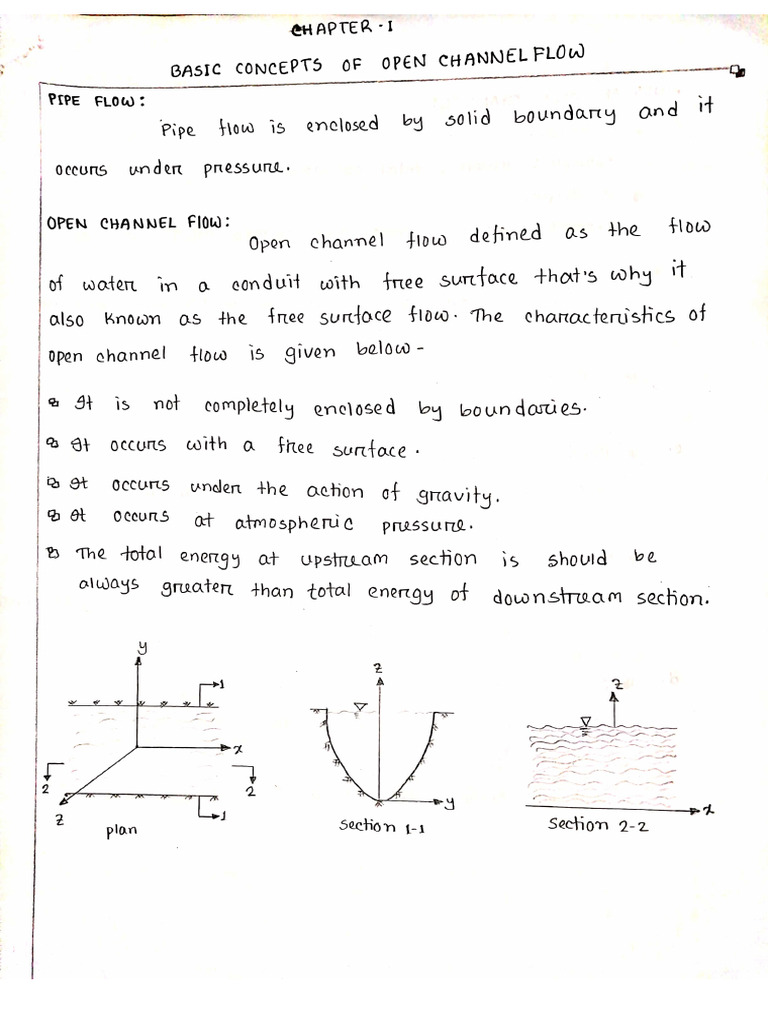 CHAPTER - I
BASIC CONCEPTS OF OPEN CHANNEL FLOW
PIPE FLOW:
Pipe flow is enclosed by solid boundary and it
occurs under pressure.
OPEN CHANNEL FLOW:
Open channel flow defined as the flow
of water in a conduit with free surface that's why it
also known as the free surface flow. The characteristics of
open channel flow is given below -
It is not completely enclosed by boundaries.
It occurs with a free surface.
It occurs under the action of gravity.
It occurs at atmospheric pressure.
The total energy at upstream section is should be
always greater than total energy of downstream section.
y
1
x
2
2
z
1
plan
z
y
Section 1-1
z
x
Section 2-2